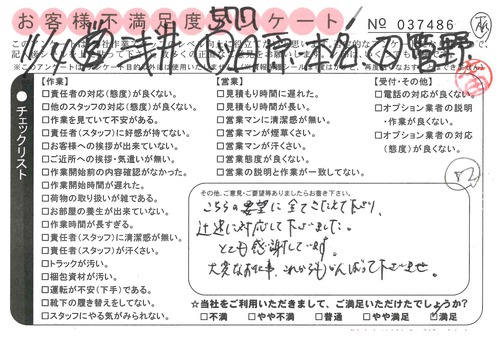 お客様不満足度アンケート
№ 037486
チェックリスト
【作業】
□責任者の対応(態度)が良くない。
□他のスタッフの対応(態度)が良くない。
□作業を見ていて不安がある。
□責任者(スタッフ)に好感が持てない。
□お客様への挨拶が出来ていない。
□ご近所への挨拶・気遣いが無い。
□作業開始前の内容確認がなかった。
□作業開始時間が遅れた。
□荷物の取り扱いが雑である。
□お部屋の養生が出来ていない。
□作業時間が長すぎる。
□責任者(スタッフ)に清潔感が無い。
□責任者(スタッフ)が汗くさい。
□トラックが汚い。
□梱包資材が汚い。
□運転が不安(下手)である。
□靴下の履き替えをしてない。
□スタッフにやる気がみられない。
【営業】
□見積もり時間に遅れた。
□見積もり時間が長い。
□営業マンに清潔感が無い。
□営業マンが煙草くさい。
□営業マンが汗くさい。
□営業態度が良くない。
□営業の説明と作業が一致してない。
【受付・その他】
□電話の対応が良くない。
□オプション業者の説明
・作業が良くない。
□オプション業者の対応
(態度)が良くない。
その他、ご意見・ご要望等ありましたらお書き下さい。
こちらの要望に全てこたえて下さり、
迅速に対応して下さいました。
とても感謝しています。
大変なお仕事、これからもがんばって下さいませ。
☆当社をご利用いただきまして、ご満足いただけたでしょうか?
□不満 □やや不満 □普通 □やや満足 ☑満足